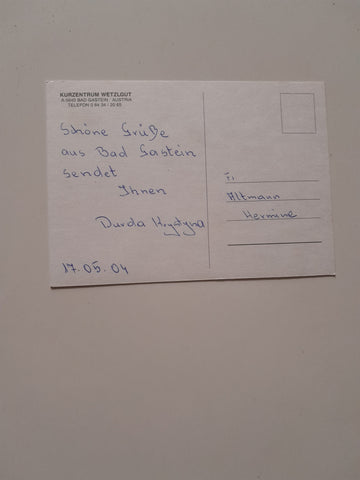 KURZENTRUM WETZLGUT
A-5640 BAD GASTEIN · AUSTRIA
TELEFON 0 64 34 - 20 65
Schöne Grüße
aus Bad Gastein
sendet
Ihnen
Durda Krystyna
17.05.04
Fr
Altmann
Hermine